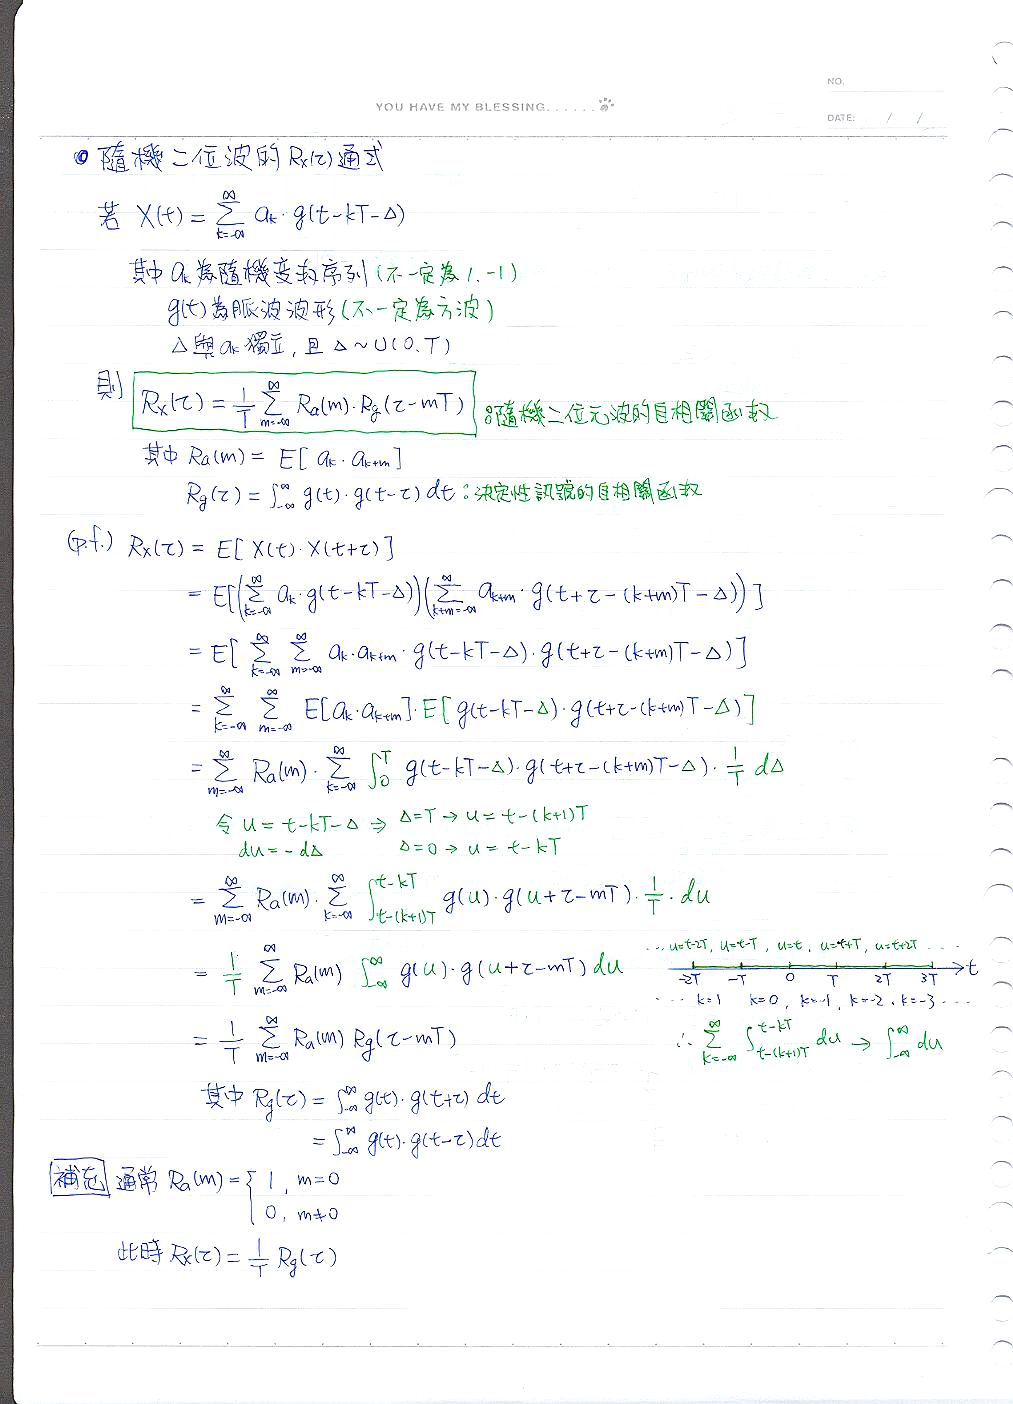 NO.
YOU HAVE MY BLESSING......
DATE: / /
隨機二位波的 Rx(τ) 通式
若 X(t) = Σ_{k=-∞}^{∞} a_k · g(t-kT-Δ)
其中 a_k 為隨機變数序列 (不一定為 1, -1)
g(t) 為脈波波形 (不一定為方波)
Δ 與 a_k 獨立, 且 Δ ~ U(0, T)
則 Rx(τ) = 1/T Σ_{m=-∞}^{∞} Ra(m) · Rg(τ-mT) : 隨機二位元波的自相關函数
其中 Ra(m) = E[a_k · a_{k+m}]
Rg(τ) = ∫_{-∞}^{∞} g(t) · g(t-τ) dt : 決定性訊號的自相關函数
(p.f.) Rx(τ) = E[X(t) · X(t+τ)]
= E[(Σ_{k=-∞}^{∞} a_k · g(t-kT-Δ))(Σ_{k+m=-∞}^{∞} a_{k+m} · g(t+τ-(k+m)T-Δ))]
= E[Σ_{k=-∞}^{∞} Σ_{m=-∞}^{∞} a_k · a_{k+m} · g(t-kT-Δ) · g(t+τ-(k+m)T-Δ)]
= Σ_{k=-∞}^{∞} Σ_{m=-∞}^{∞} E[a_k · a_{k+m}] · E[g(t-kT-Δ) · g(t+τ-(k+m)T-Δ)]
= Σ_{m=-∞}^{∞} Ra(m) · Σ_{k=-∞}^{∞} ∫_0^T g(t-kT-Δ) · g(t+τ-(k+m)T-Δ) · 1/T dΔ
令 u = t-kT-Δ ⇒ Δ=T → u = t-(k+1)T
du = -dΔ Δ=0 → u = t-kT
= Σ_{m=-∞}^{∞} Ra(m) · Σ_{k=-∞}^{∞} ∫_{t-(k+1)T}^{t-kT} g(u) · g(u+τ-mT) · 1/T · du
= 1/T Σ_{m=-∞}^{∞} Ra(m) ∫_{-∞}^{∞} g(u) · g(u+τ-mT) du
... u=t-2T, u=t-T, u=t, u=t+T, u=t+2T ...
-2T -T 0 T 2T 3T t
... k=1 k=0, k=-1, k=-2, k=-3 ...
= 1/T Σ_{m=-∞}^{∞} Ra(m) Rg(τ-mT)
∴ Σ_{k=-∞}^{∞} ∫_{t-(k+1)T}^{t-kT} du → ∫_{-∞}^{∞} du
其中 Rg(τ) = ∫_{-∞}^{∞} g(t) · g(t+τ) dt
= ∫_{-∞}^{∞} g(t) · g(t-τ) dt
補充 通常 Ra(m) = { 1, m=0
0, m≠0
此時 Rx(τ) = 1/T Rg(τ)